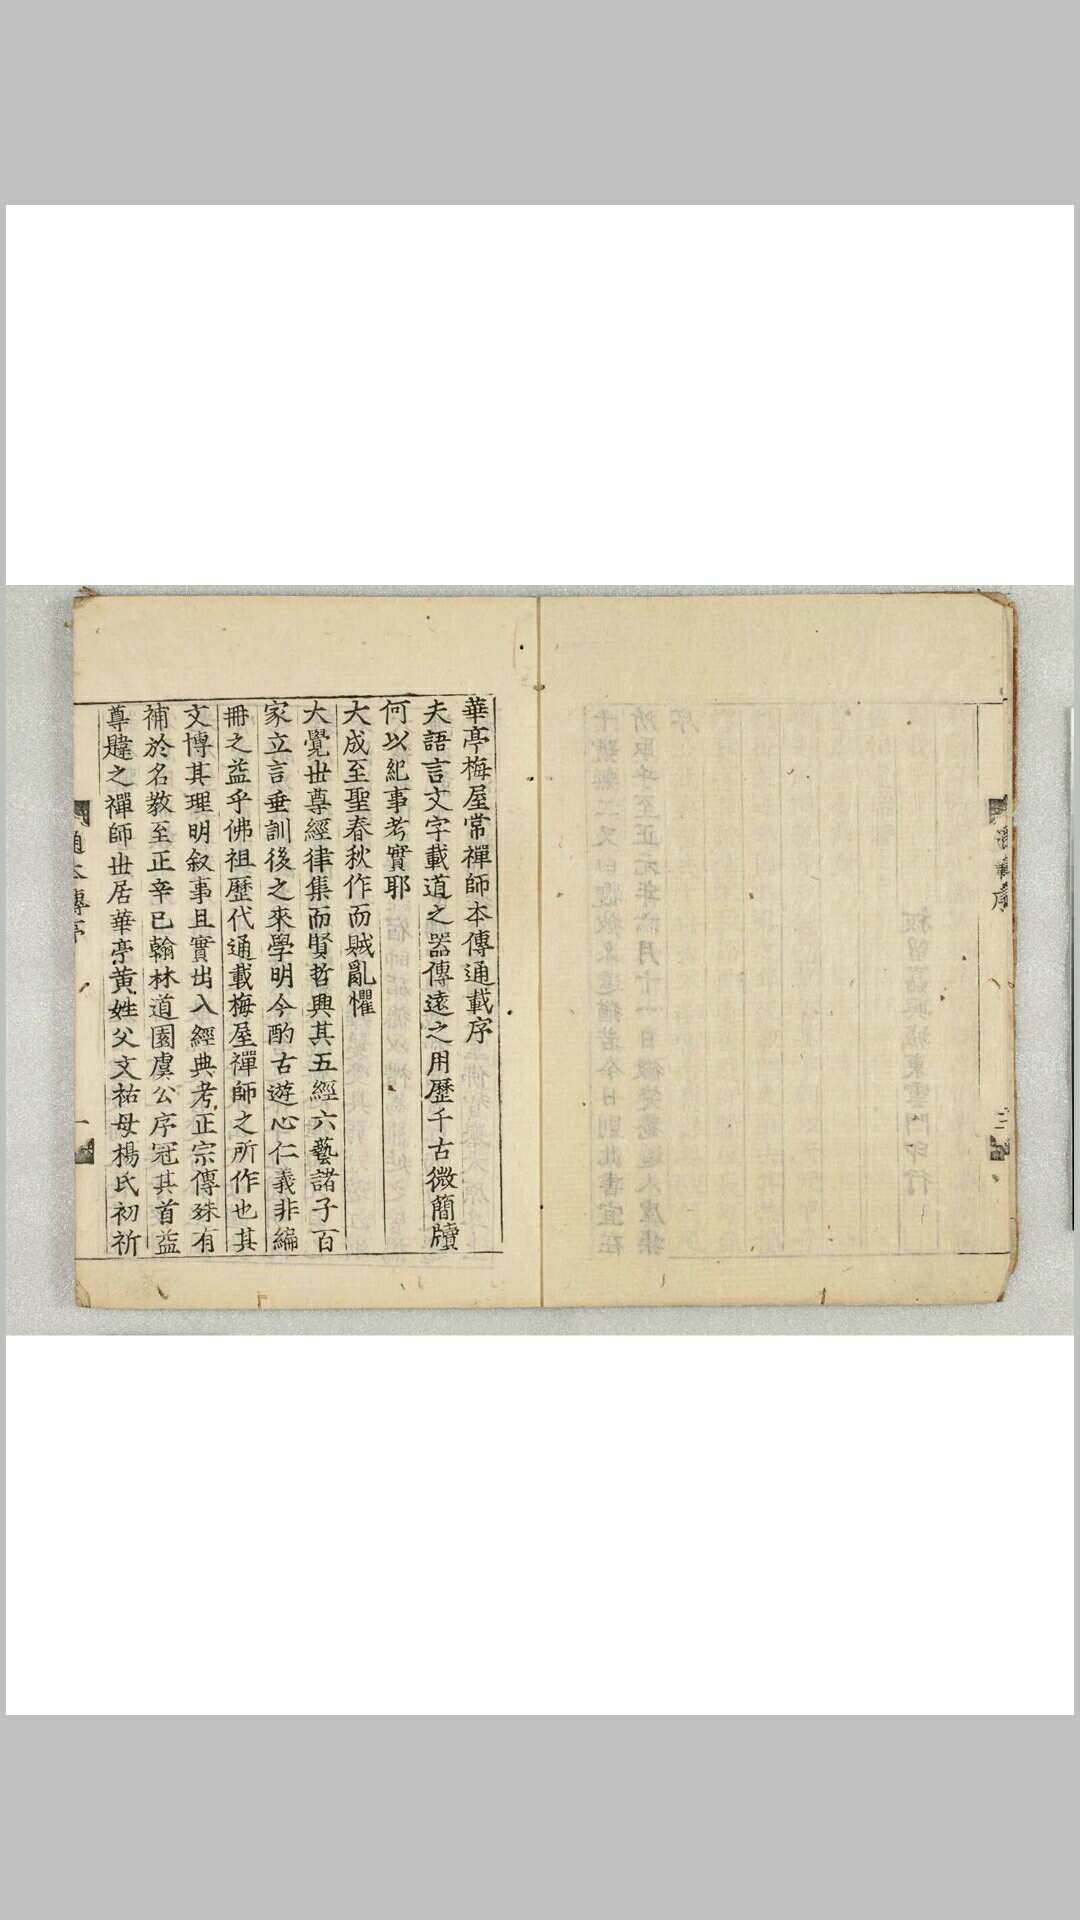 華亭梅屋常禪師本傳通載序
夫語言文字載道之器傳遠之用歷千古微簡牘
何以紀事考實耶
大成至聖春秋作而賊亂懼
大覺世尊經律集而賢哲興其五經六藝諸子百
家立言垂訓後之來學明今酌古遊心仁義非編
冊之益乎佛祖歷代通載梅屋禪師之所作也其
文博其理明叙事且實出入經典考正宗傳殊有
補於名教至正辛巳翰林道園虞公序冠其首益
尊韙之禪師世居華亭黃姓父文祐母楊氏初祈